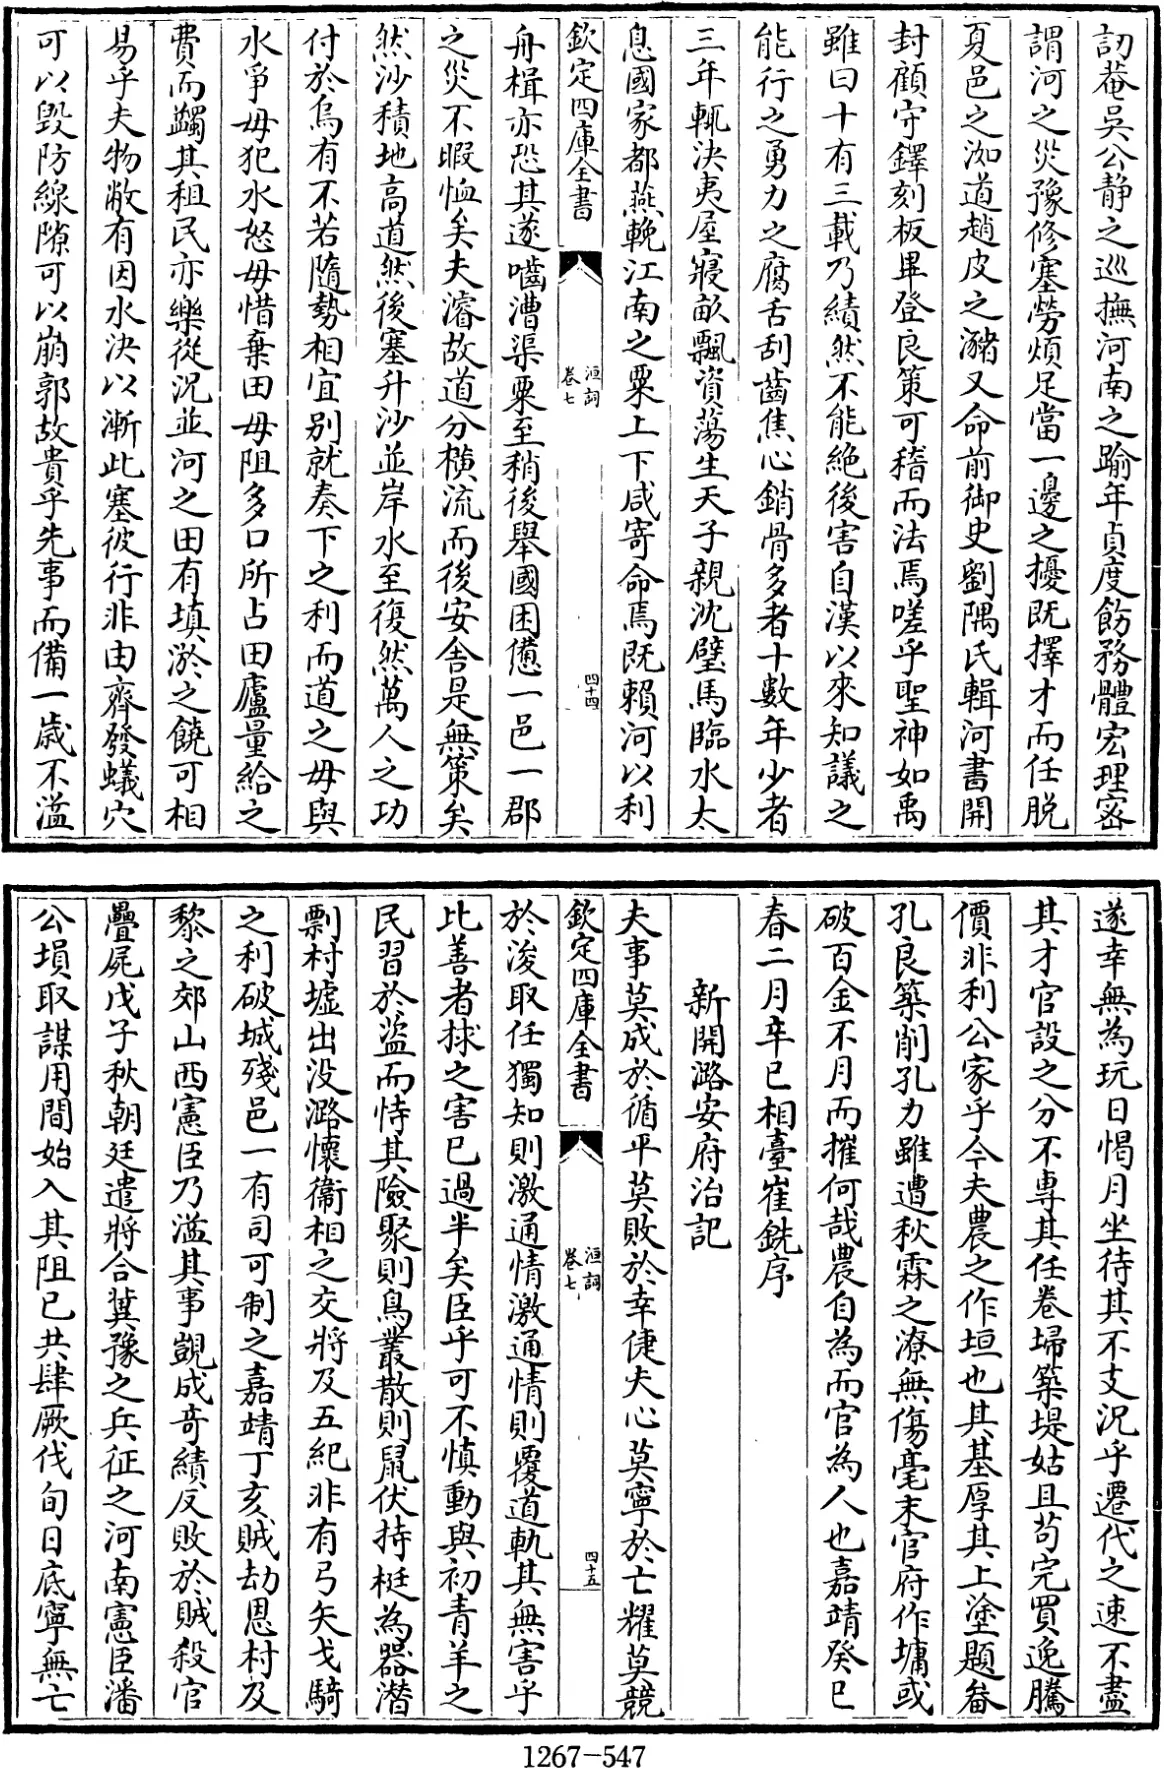 訒菴吳公靜之巡撫河南之踰年貞度飭務體宏理密
謂河之災豫修塞勞煩足當一邊之擾既擇才而任脱
夏邑之洳道趙皮之瀦又命前御史劉隅氏輯河書開
封顧守鐸刻板畢登良策可稽而法焉嗟乎聖神如禹
雖曰十有三載乃績然不能絶後害自漢以來知議之
能行之勇力之腐舌刮齒焦心銷骨多者十數年少者
三年輒決夷屋寢畝飄資蕩生天子親沈璧馬臨水太
息國家都燕輓江南之粟上下咸寄命焉既賴河以利
欽定四庫全書
洹詞
卷七
四十四
舟楫亦恐其遂嚙漕渠粟至稍後舉國困憊一邑一郡
之災不暇恤矣夫濬故道分橫流而後安舍是無策矣
然沙積地高道然後塞升沙並岸水至復然萬人之功
付於烏有不若隨勢相宜别就奏下之利而道之毋與
水爭毋犯水怒毋惜棄田毋阻多口所占田廬量給之
費而蠲其租民亦樂從況並河之田有填淤之饒可相
易乎夫物敝有因水決以漸此塞彼行非由齊發蟻穴
可以毁防線隙可以崩郭故貴乎先事而備一歲不溢
遂幸無為玩日愒月坐待其不支況乎遷代之速不盡
其才官設之分不專其任卷埽築堤姑且苟完買逸騰
價非利公家乎今夫農之作垣也其基厚其上塗題畚
孔良築削孔力雖遭秋霖之潦無傷毫末官府作墉或
破百金不月而摧何哉農自為而官為人也嘉靖癸巳
春二月辛巳相臺崔銑序
新開潞安府治記
夫事莫成於循平莫敗於幸倢夫心莫寧於亡耀莫競
欽定四庫全書
洹詞
卷七
四十五
於浚取任獨知則激通情激通情則覆道軌其無害乎
比善者捄之害已過半矣臣乎可不慎動與初青羊之
民習於盜而恃其險聚則鳥叢散則鼠伏持梃為器潛
剽村墟出没潞懷衞相之交將及五紀非有弓矢戈騎
之利破城殘邑一有司可制之嘉靖丁亥賊劫恩村及
黎之郊山西憲臣乃溢其事覬成奇績反敗於賊殺官
疊屍戊子秋朝廷遣將合冀豫之兵征之河南憲臣潘
公塤取謀用間始入其阻已共肆厥伐旬日底寧無亡
1267-547